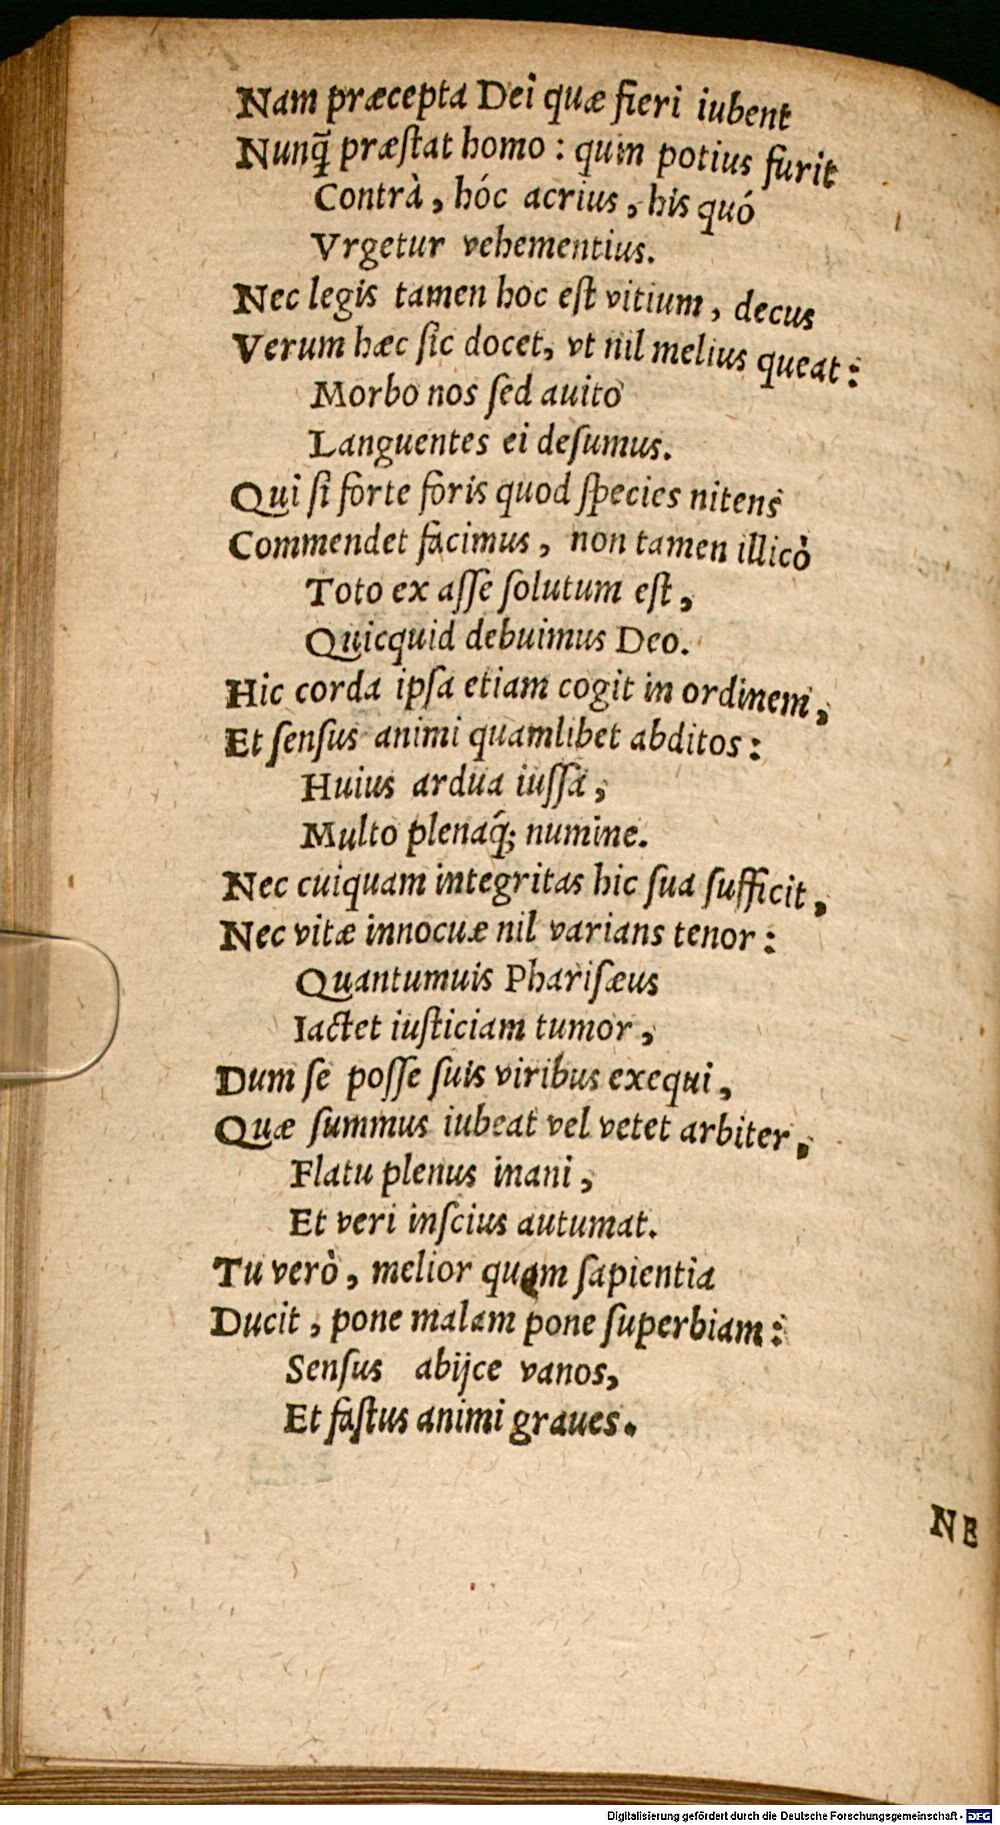 Nam præcepta Dei quæ fieri iubent
Nunq̃ præſtat homo : quin potius furit
Contrà, hóc acrius, his quó
Vrgetur vehementius.
Nec legis tamen hoc eſt vitium, decus
Verum hæc ſic docet, vt nil melius queat:
Morbo nos ſed auito
Languentes ei deſumus.
Qui ſi forte foris quod ſpecies nitens
Commendet facimus, non tamen illicò
Toto ex aſſe ſolutum eſt,
Quicquid debuimus Deo.
Hic corda ipſa etiam cogit in ordinem,
Et ſenſus animi quamlibet abditos:
Huius ardua iuſſa,
Multo plenaq́; numine.
Nec cuiquam integritas hic ſua ſufficit,
Nec vitæ innocuæ nil varians tenor:
Quantumuis Phariſæus
Iactet iuſticiam tumor,
Dum ſe poſſe ſuis viribus exequi,
Quæ ſummus iubeat vel vetet arbiter,
Flatu plenus inani,
Et veri inſcius autumat.
Tu verò, melior quem ſapientia
Ducit, pone malam pone ſuperbiam:
Senſus abijce vanos,
Et faſtus animi graues.
NE
Digitalisierung gefördert durch die Deutsche Forschungsgemeinschaft - DFG